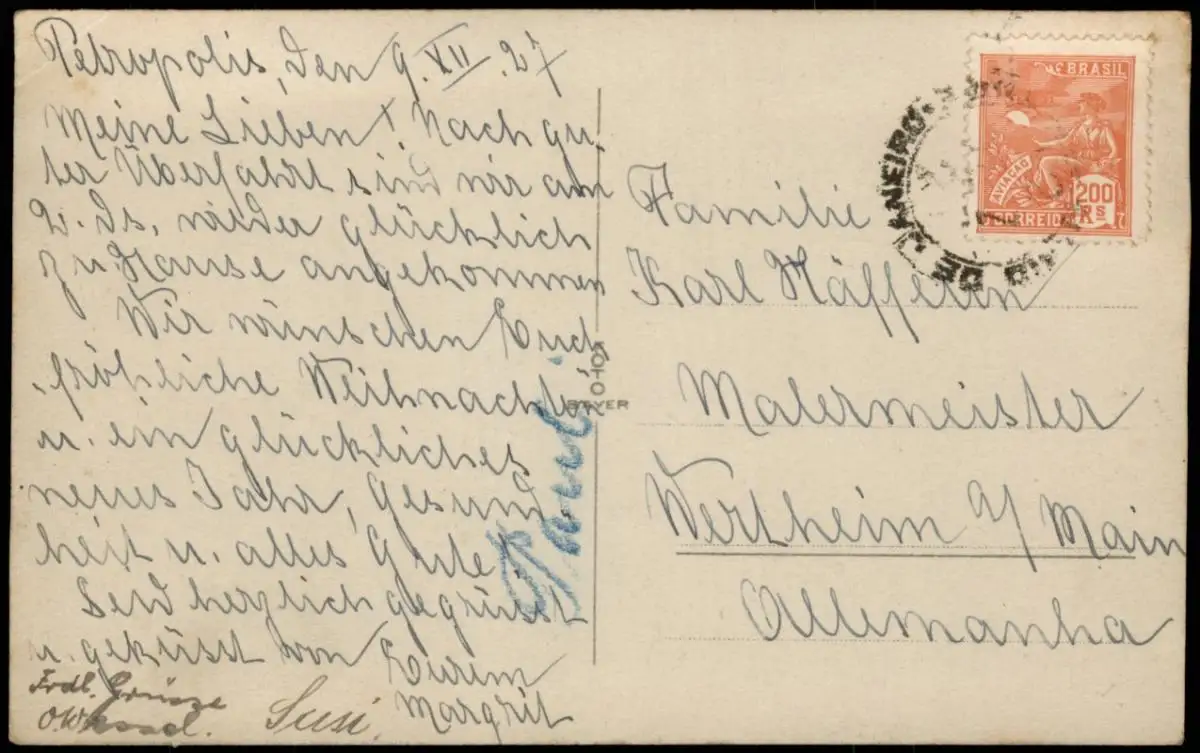 Petropolis, den 9. XII. 27
Meine Lieben! Nach gu-
ter Überfahrt sind wir am
2. ds. wieder glücklich
zu Hause angekommen
Wir wünschen Euch
fröhliche Weihnachten
u. ein glückliches
neues Jahr, Gesund
heit u. alles Gute
Seid herzlich gegrüsst
u. geküsst von Eurem
Margrit
Frdl. Grüsse
Susi.
FOTO
Familie
Karl Häfferlin
Malermeister
Wertheim a/ Main
Allemanha
BRASIL
AVIAÇÃO
200
RS
CORREIO
RIO DE JANEIRO